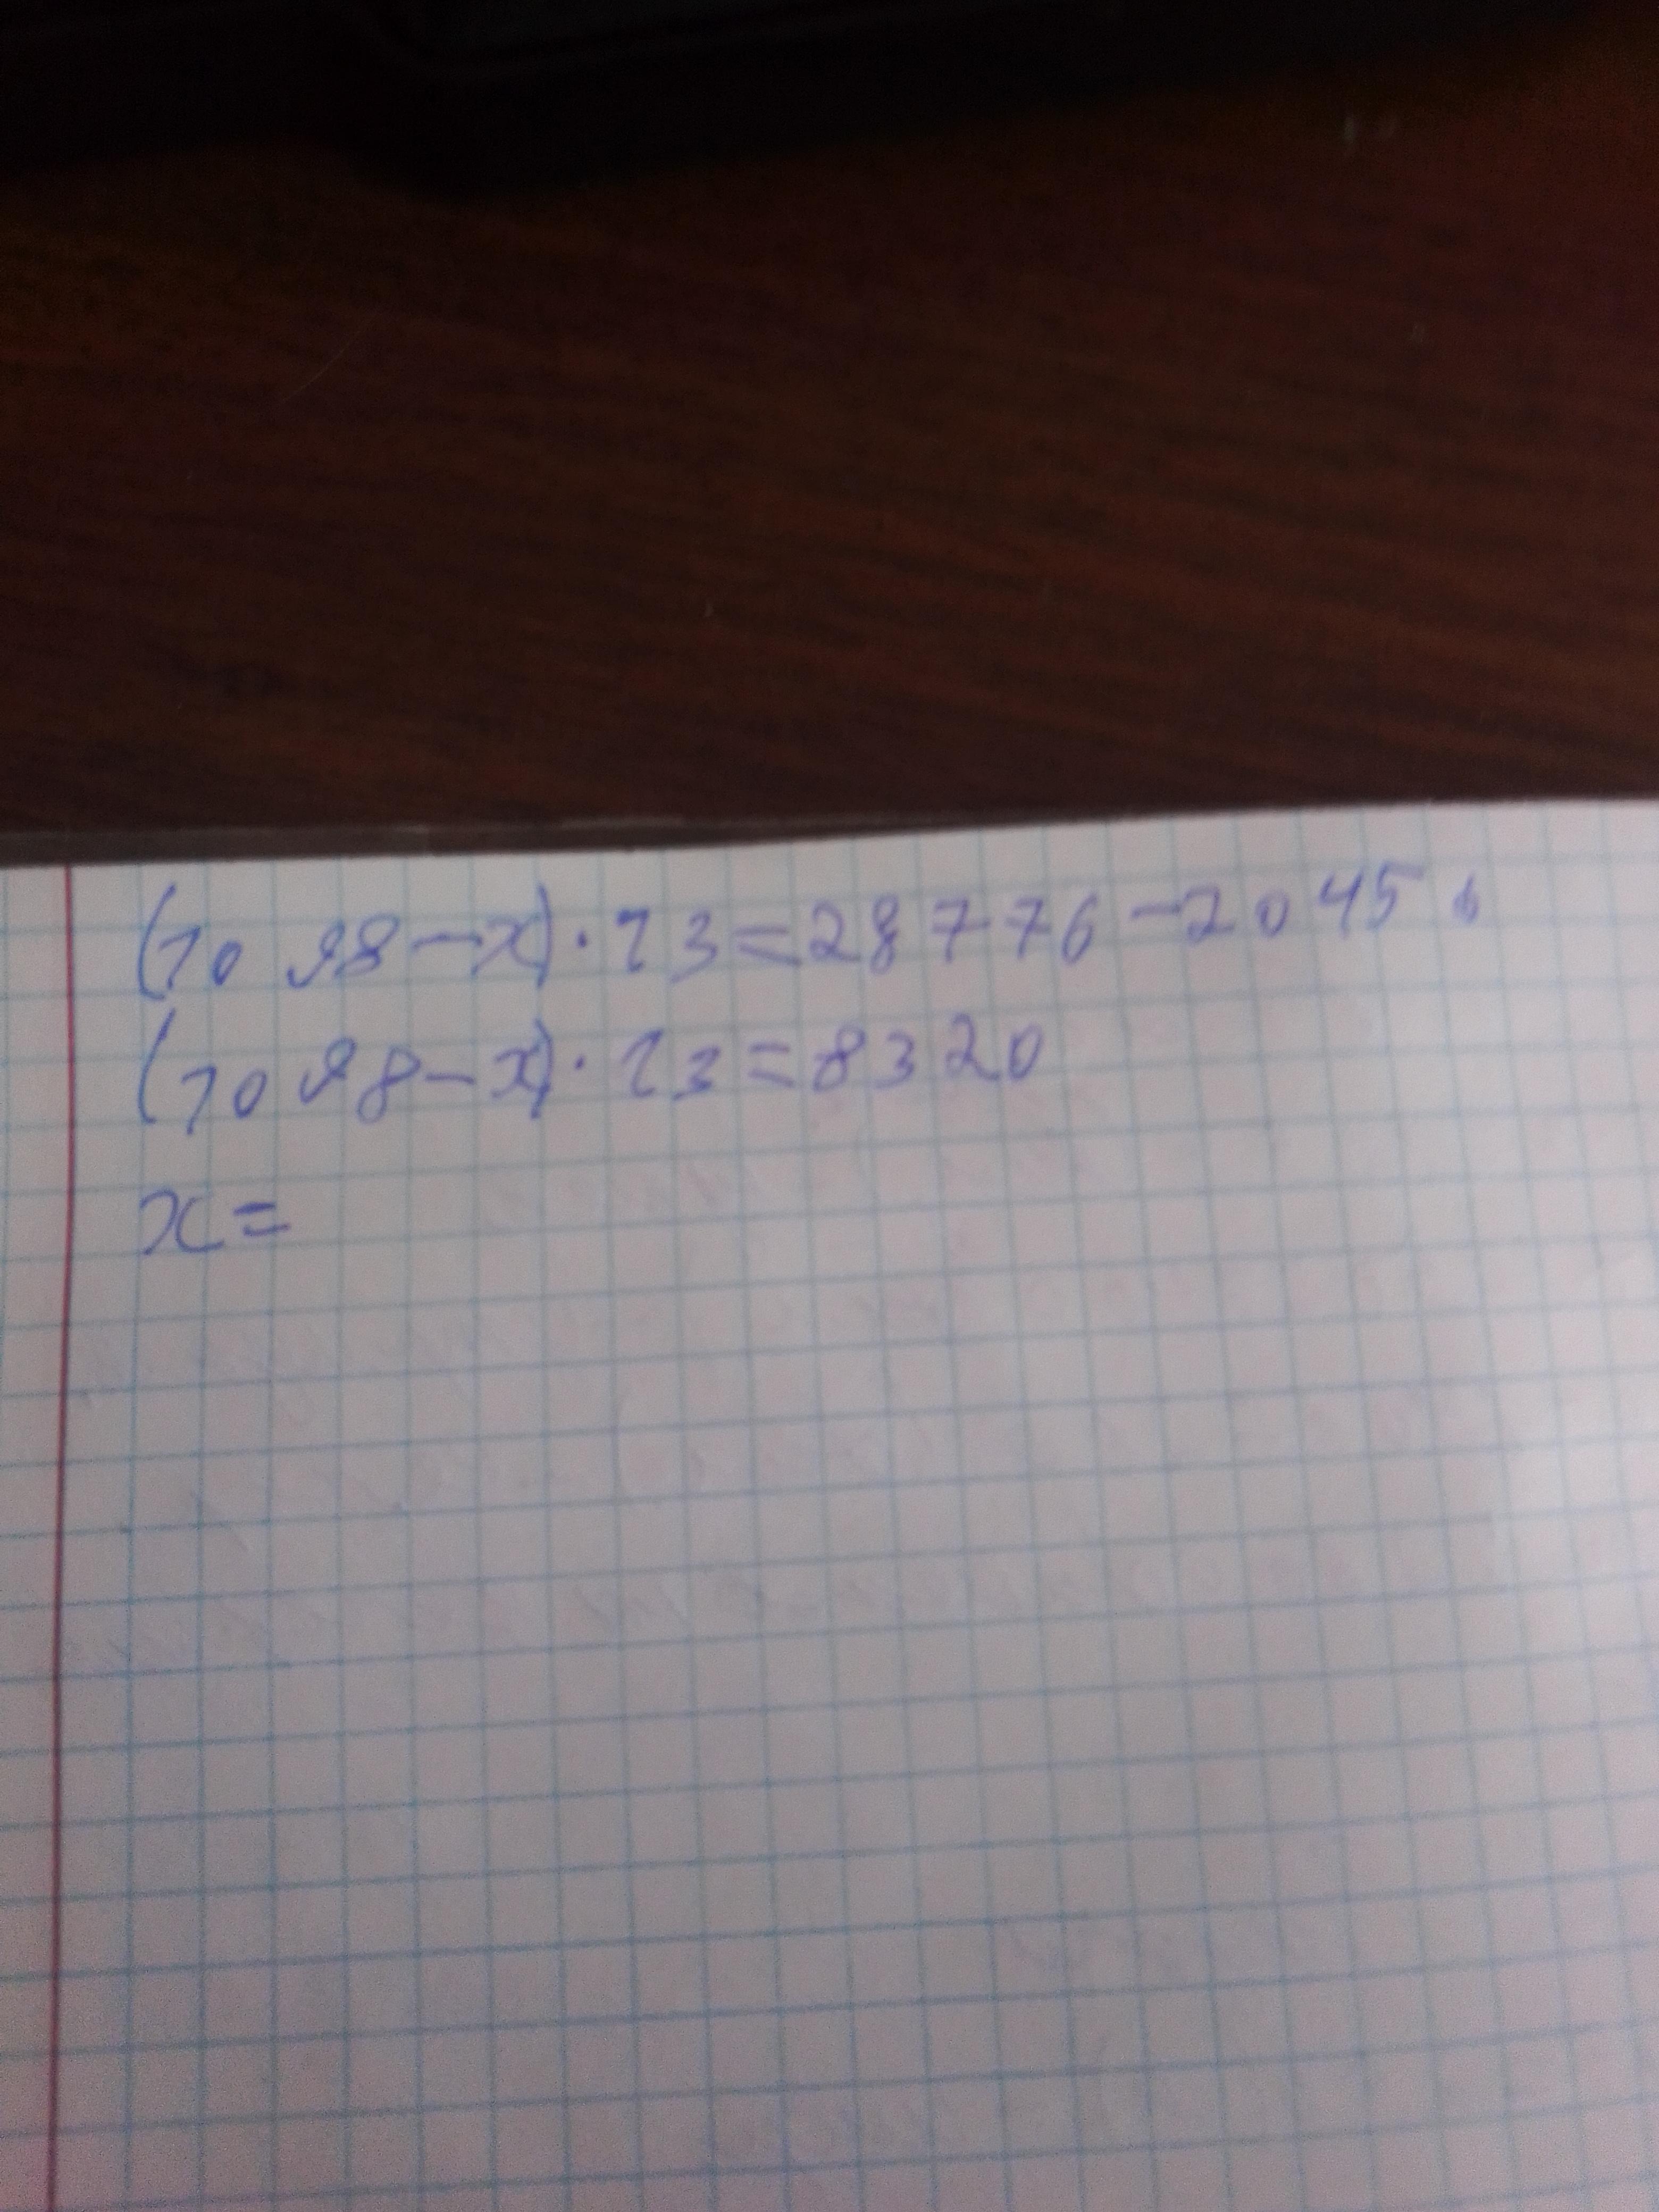 (10 98-x)·13=28776-20456
(1098-x)·13=8320
x=